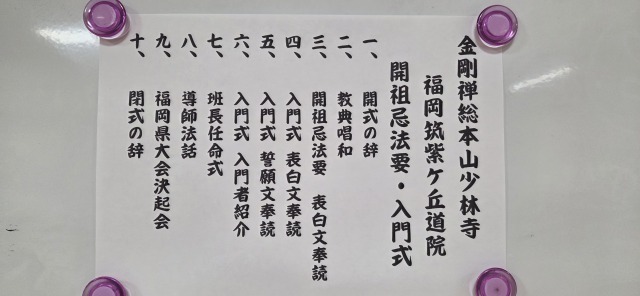 金剛禅総本山少林寺
福岡筑紫ケ丘道院
開祖忌法要・入門式
一、開式の辞
二、教典唱和
三、開祖忌法要 表白文奉読
四、入門式 表白文奉読
五、入門式 誓願文奉読
六、入門式 入門者紹介
七、班長任命式
八、導師法話
九、福岡県大会決起会
十、閉式の辞